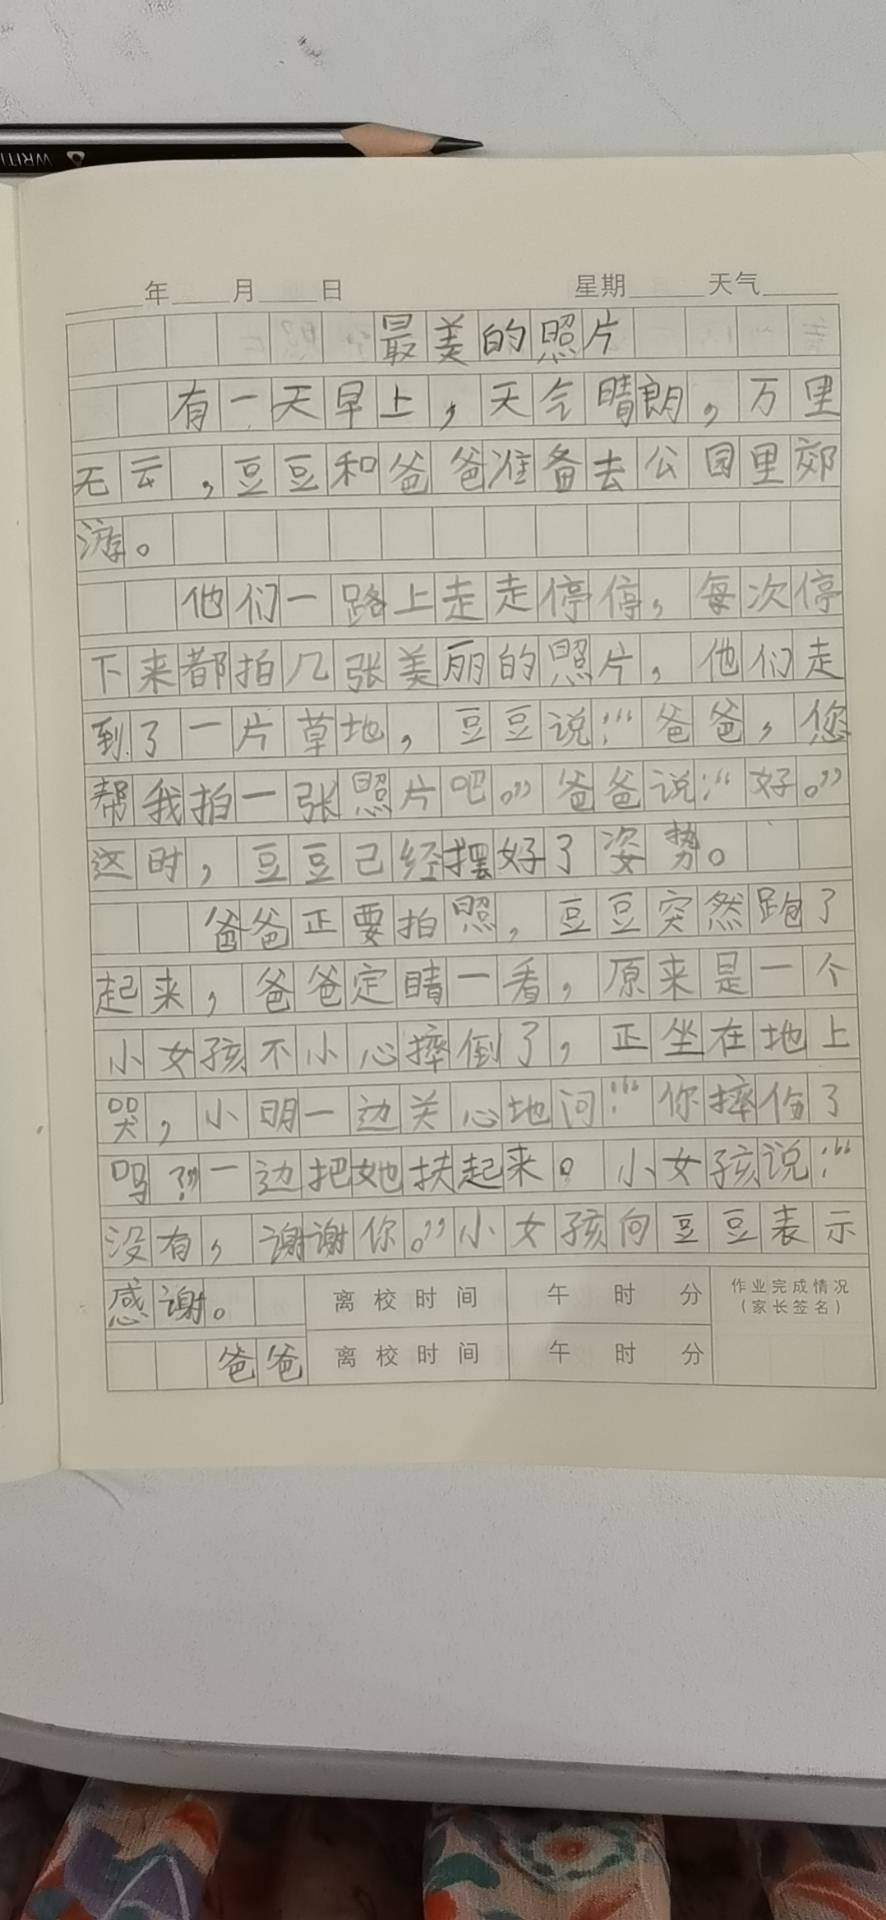 WRITI
年 月 日 星期 天气
最美的照片
有一天早上，天气晴朗，万里
无云，豆豆和爸爸准备去公园里郊
游。
他们一路上走走停停，每次停
下来都拍几张美丽的照片，他们走
到了一片草地，豆豆说：“爸爸，您
帮我拍一张照片吧。”爸爸说：“好。”
这时，豆豆已经摆好了姿势。
爸爸正要拍照，豆豆突然跑了
起来，爸爸定睛一看，原来是一个
小女孩不小心摔倒了，正坐在地上
哭，小明一边关心地问：“你摔伤了
吗？”一边把她扶起来。小女孩说：“
没有，谢谢你。”小女孩向豆豆表示
感谢。 离校时间 午 时 分 作业完成情况
（家长签名）
爸爸 离校时间 午 时 分